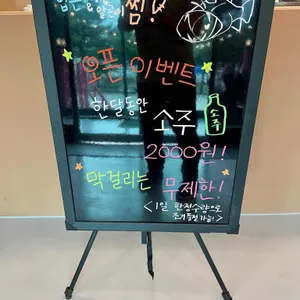 찜!
오픈 이벤트
한달동안
소주
소주
2000원!
막걸리는 무제한!
<1일 한정수량으로
조기품절가능!>